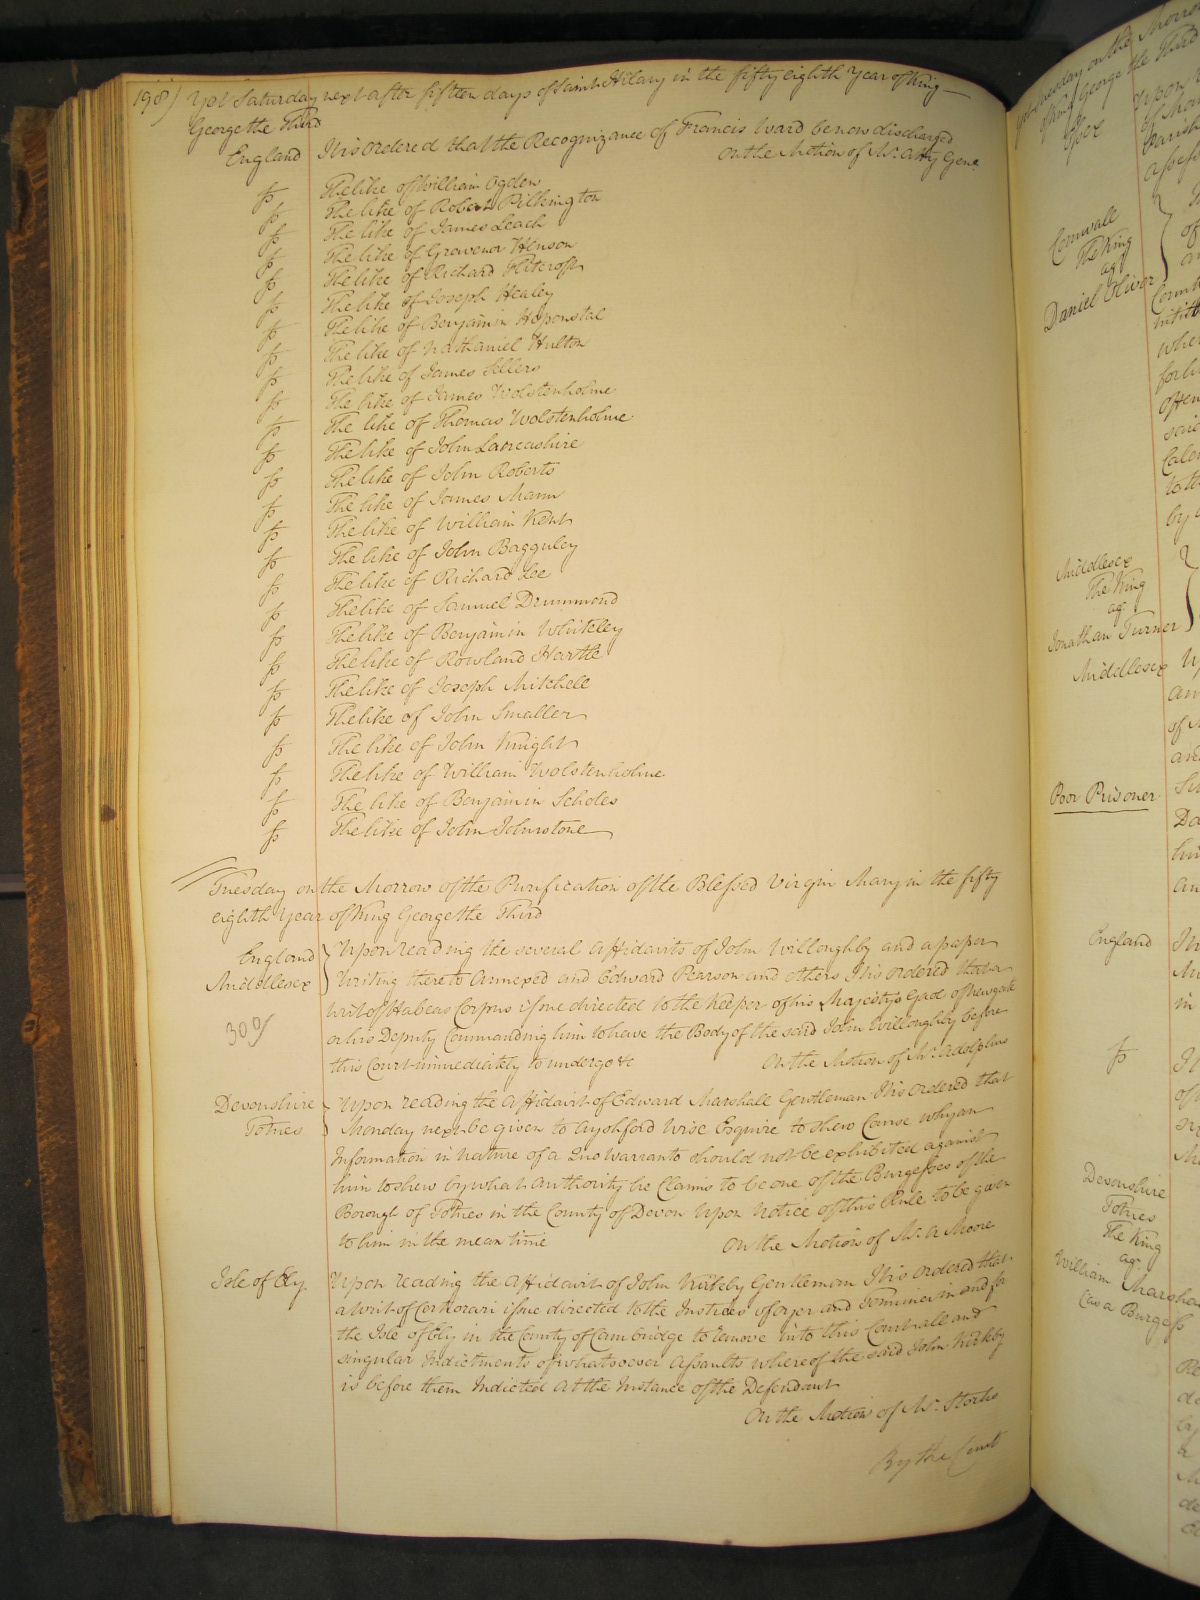 198) Yet Saturday next after fifteen days of Saint Hilary in the fifty eighth Year of King
George the Third
England It is Ordered that the Recognizance of Francis Ward be now discharged
On the Motion of Mr. Atty Genl.
The like of William Ogden
The like of Robert Pilkington
The like of James Leach
The like of Gravenor Henson
The like of Richard Flitcroft
The like of Joseph Healey
The like of Benjamin Heponstal
The like of Nathaniel Hulton
The like of James Sellers
The like of James Wolstenholme
The like of Thomas Wolstenholme
The like of John Lancashire
The like of John Roberts
The like of James Mann
The like of William Kent
The like of John Bagguley
The like of Richard Lee
The like of Samuel Drummond
The like of Benjamin Whiteley
The like of Rowland Heartle
The like of Joseph Mitchell
The like of John Smaller
The like of John Knight
The like of William Wolstenholme
The like of Benjamin Scholes
The like of John Johnstone
Tuesday on the Morrow of the Purification of the Blessed Virgin Mary in the fifty
eighth Year of King George the Third
England Upon reading the several Affidavits of John Willoughby and a paper
Middlesex Writing thereto Annexed and Edward Pearson and others It is ordered that a
300/
writ of Habeas Corpus issue directed to the Keeper of his Majestys Gaol of Newgate
or his Deputy Commanding him to have the Body of the said John Willoughby before
this Court immediately to undergo &c On the Motion of Mr. Adolphus
Devonshire Upon reading the Affidavit of Edward Marshall Gentleman It is Ordered that
Totnes Monday next be given to Ayshford Wise Esquire to shew Cause why an
Information in nature of a Quo Warranto should not be exhibited against
him to shew by what Authority he Claims to be one of the Burgesses of the
Borough of Totnes in the County of Devon Upon Notice of this Rule to be given
to him in the mean time On the Motion of Mr. A Moore
Isle of Ely Upon reading the Affidavit of John Kirkby Gentleman It is Ordered that
a writ of Certiorari issue directed to the Justices of oyer and Terminer in and for
the Isle of Ely in the County of Cambridge to remove into this Court all and
singular Indictments of whatsoever Assaults whereof the said John Kirkby
is before them Indicted At the Instance of the Defendant
On the Motion of Mr. Storks
By the Court
Cornwall
The King
agt
Daniel Oliver
Middlesex
The King
agt
Jonathan Turner
Middlesex
Poor Prisoner
England
Devonshire
Totnes
The King
agt
William Marshall
(as a Burgess